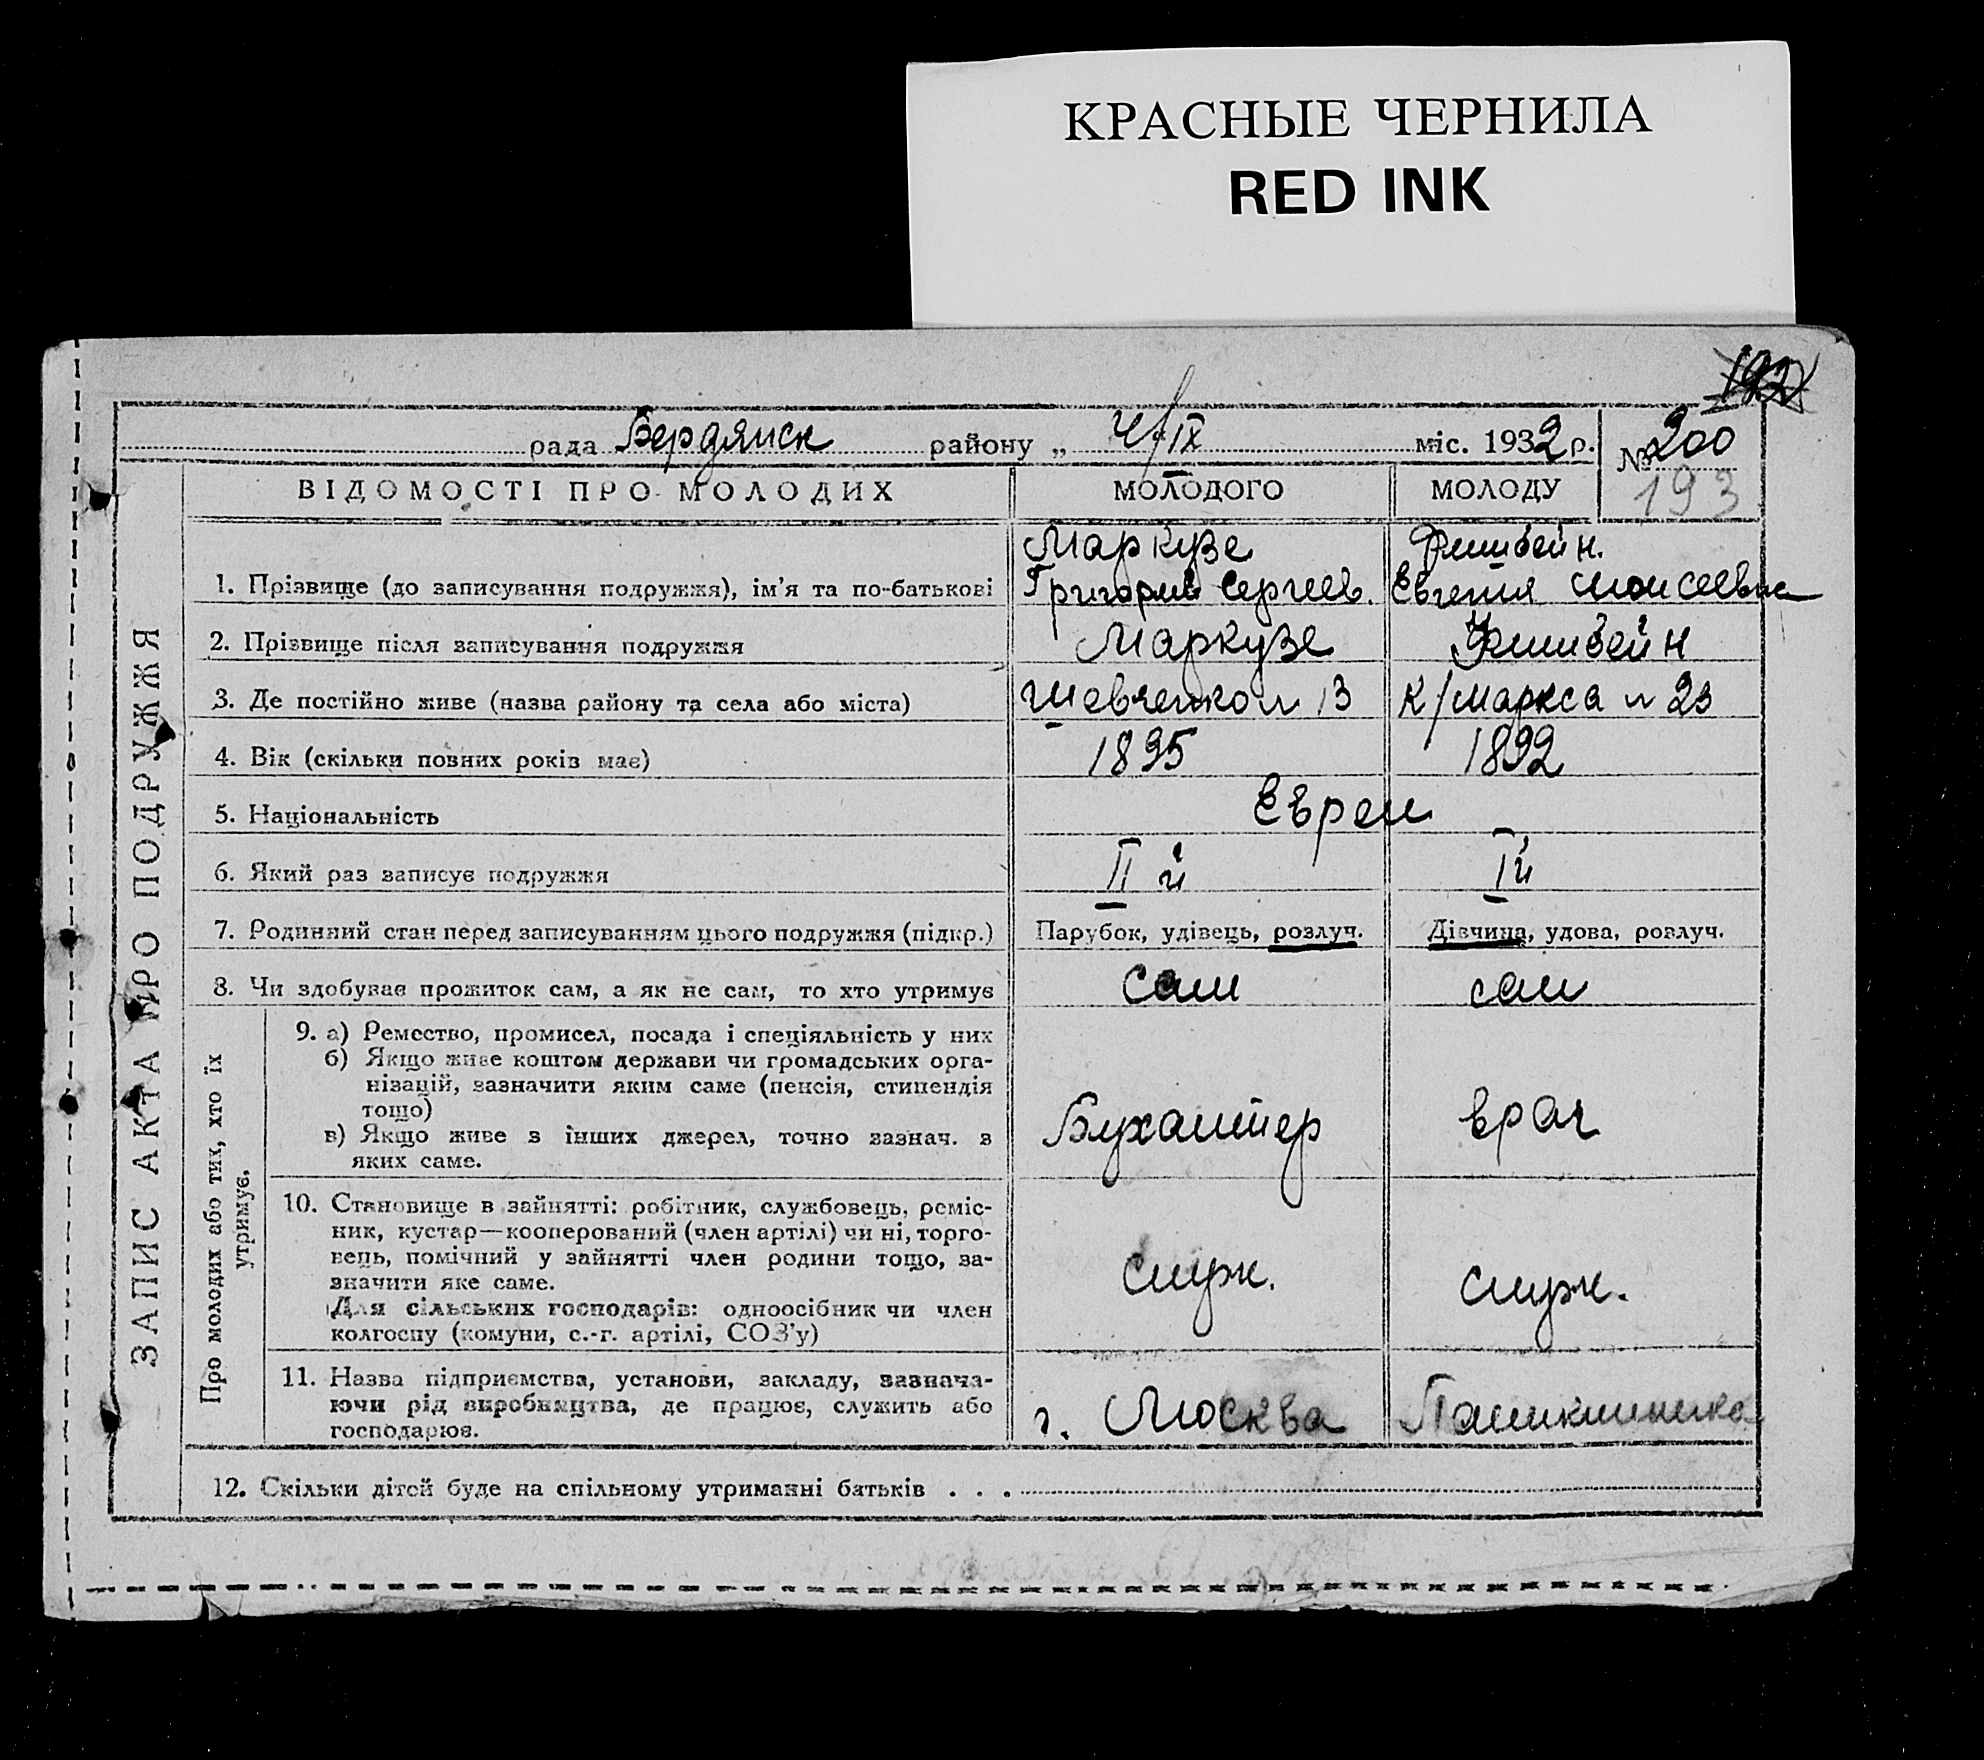 КРАСНЫЕ ЧЕРНИЛА
RED INK
рада Бердянск району „ 4/IX міс. 1932 р.
№ 200
193
ЗАПИС АКТА ПРО ПОДРУЖЖЯ
ВІДОМОСТІ ПРО МОЛОДИХ МОЛОДОГО МОЛОДУ
Маркузе
Григорий Сергеев. Евгения Моисеевна
1. Прізвище (до записування подружжя), ім’я та по-батькові
2. Прізвище після записування подружжя Маркузе
3. Де постійно живе (назва району та села або міста) Шевченко № 13 К/Маркса № 23
4. Вік (скільки повних років має) 1895 1892
5. Національність Евреи
6. Який раз записує подружжя II й I й
7. Родинний стан перед записуванням цього подружжя (підкр.) Парубок, удівець, розлуч. Дівчина, удова, розлуч.
8. Чи здобуває прожиток сам, а як не сам, то хто утримує сам сам
Про молодих або тих, хто їх
утримує.
9. а) Ремество, промисел, посада і спеціяльність у них
б) Якщо живе коштом держави чи громадських орга-
нізацій, зазначити яким саме (пенсія, стипендія
тощо)
в) Якщо живе з інших джерел, точно зазнач. з
яких саме.
Бухгалтер врач
10. Становище в зайнятті: робітник, службовець, реміс-
ник, кустар—кооперований (член артілі) чи ні, торго-
вець, помічний у зайнятті член родини тощо, за-
значити яке саме.
Для сільських господарів: одноосібник чи член
колгоспу (комуни, с.-г. артілі, СОЗ’у)
служ. служ.
11. Назва підприємства, установи, закладу, зазнача-
ючи рід виробництва, де працює, служить або
господарює.
г. Москва
12. Скільки дітей буде на спільному утриманні батьків . . .